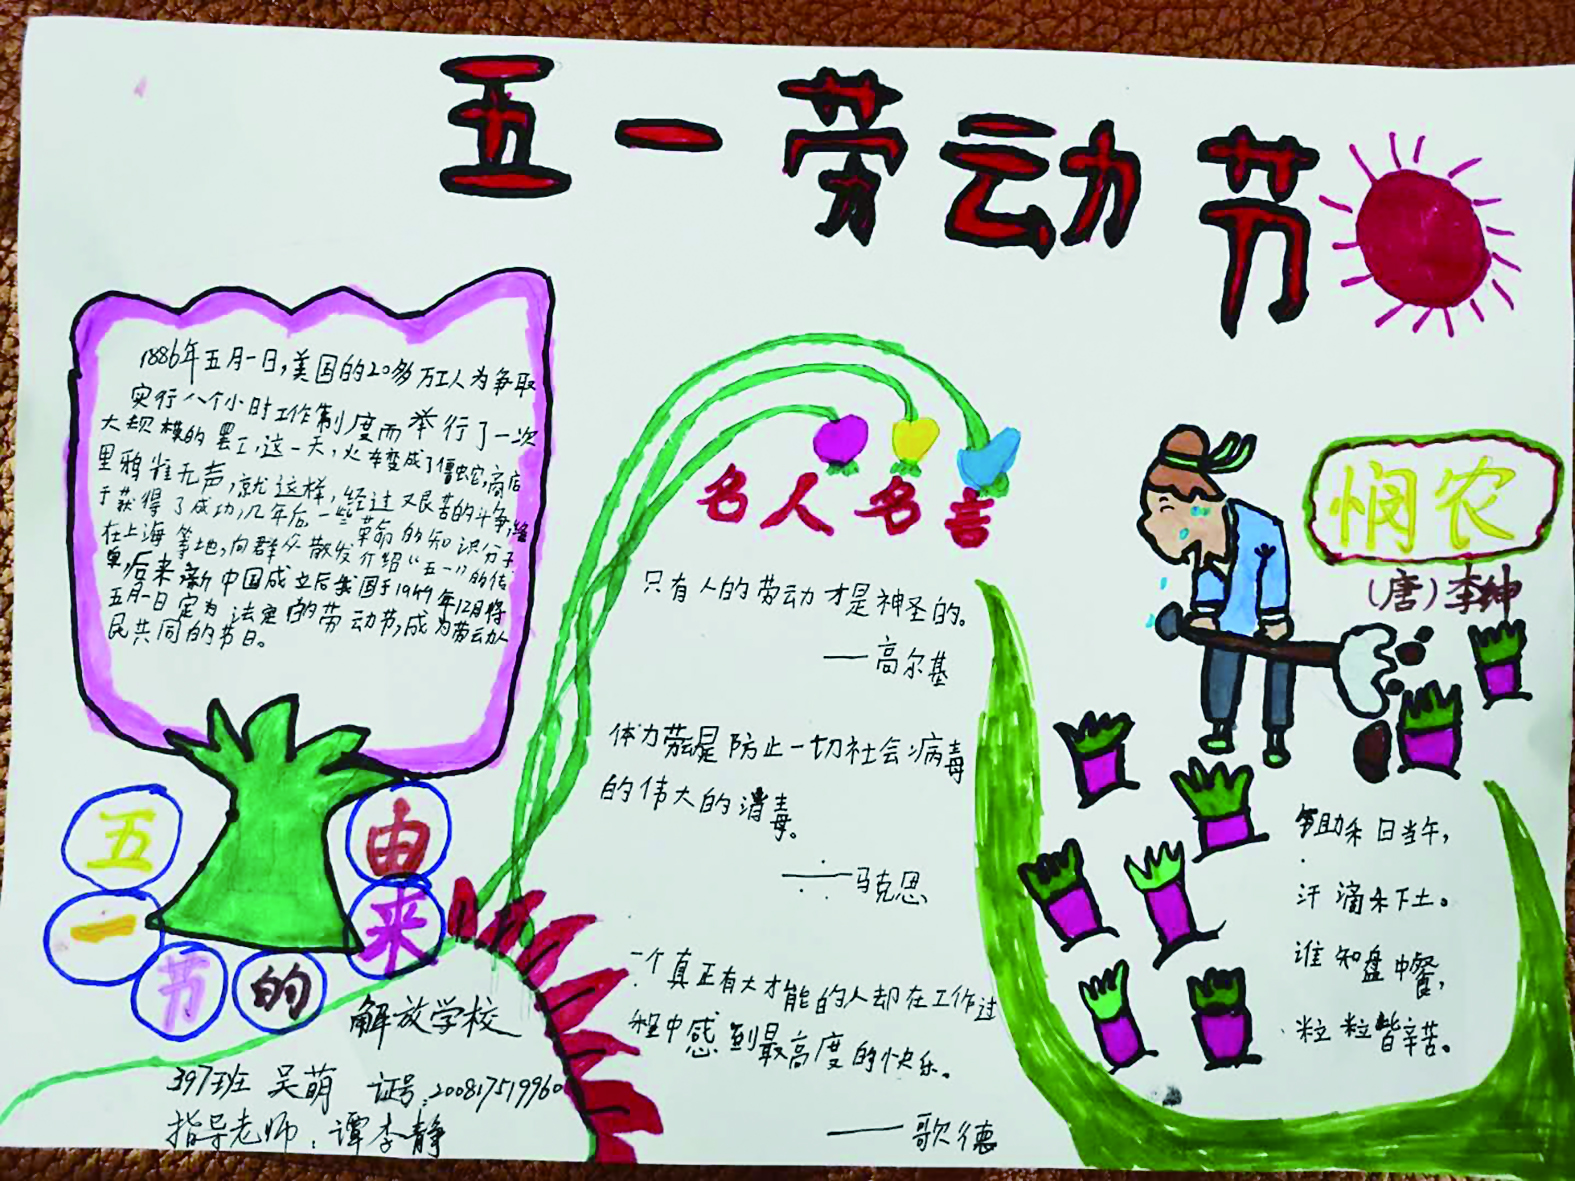 五一劳动节
1886年五月一日,美国的20多万工人为争取
实行八个小时工作制度而举行了一次
大规模的罢工,这一天,火车变成了僵蛇,商店
里鸦雀无声,就这样,经过艰苦的斗争,终
于获得了成功,几年后,一些革命的知识分子
在上海等地,向群众散发介绍“五一”的传
单,后来新中国成立后我国于1949年12月将
五月一日定为法定的劳动节,成为劳动人
民共同的节日。
五一节的由来
解放学校
397班 吴萌 证号:200817519960
指导老师:谭李静
名人名言
只有人的劳动才是神圣的。
——高尔基
体力劳动是防止一切社会病毒
的伟大的消毒。
——马克思
一个真正有大才能的人却在工作过
程中感到最高度的快乐。
——歌德
悯农
(唐)李绅
助禾日当午,
汗滴禾下土。
谁知盘中餐,
粒粒皆辛苦。